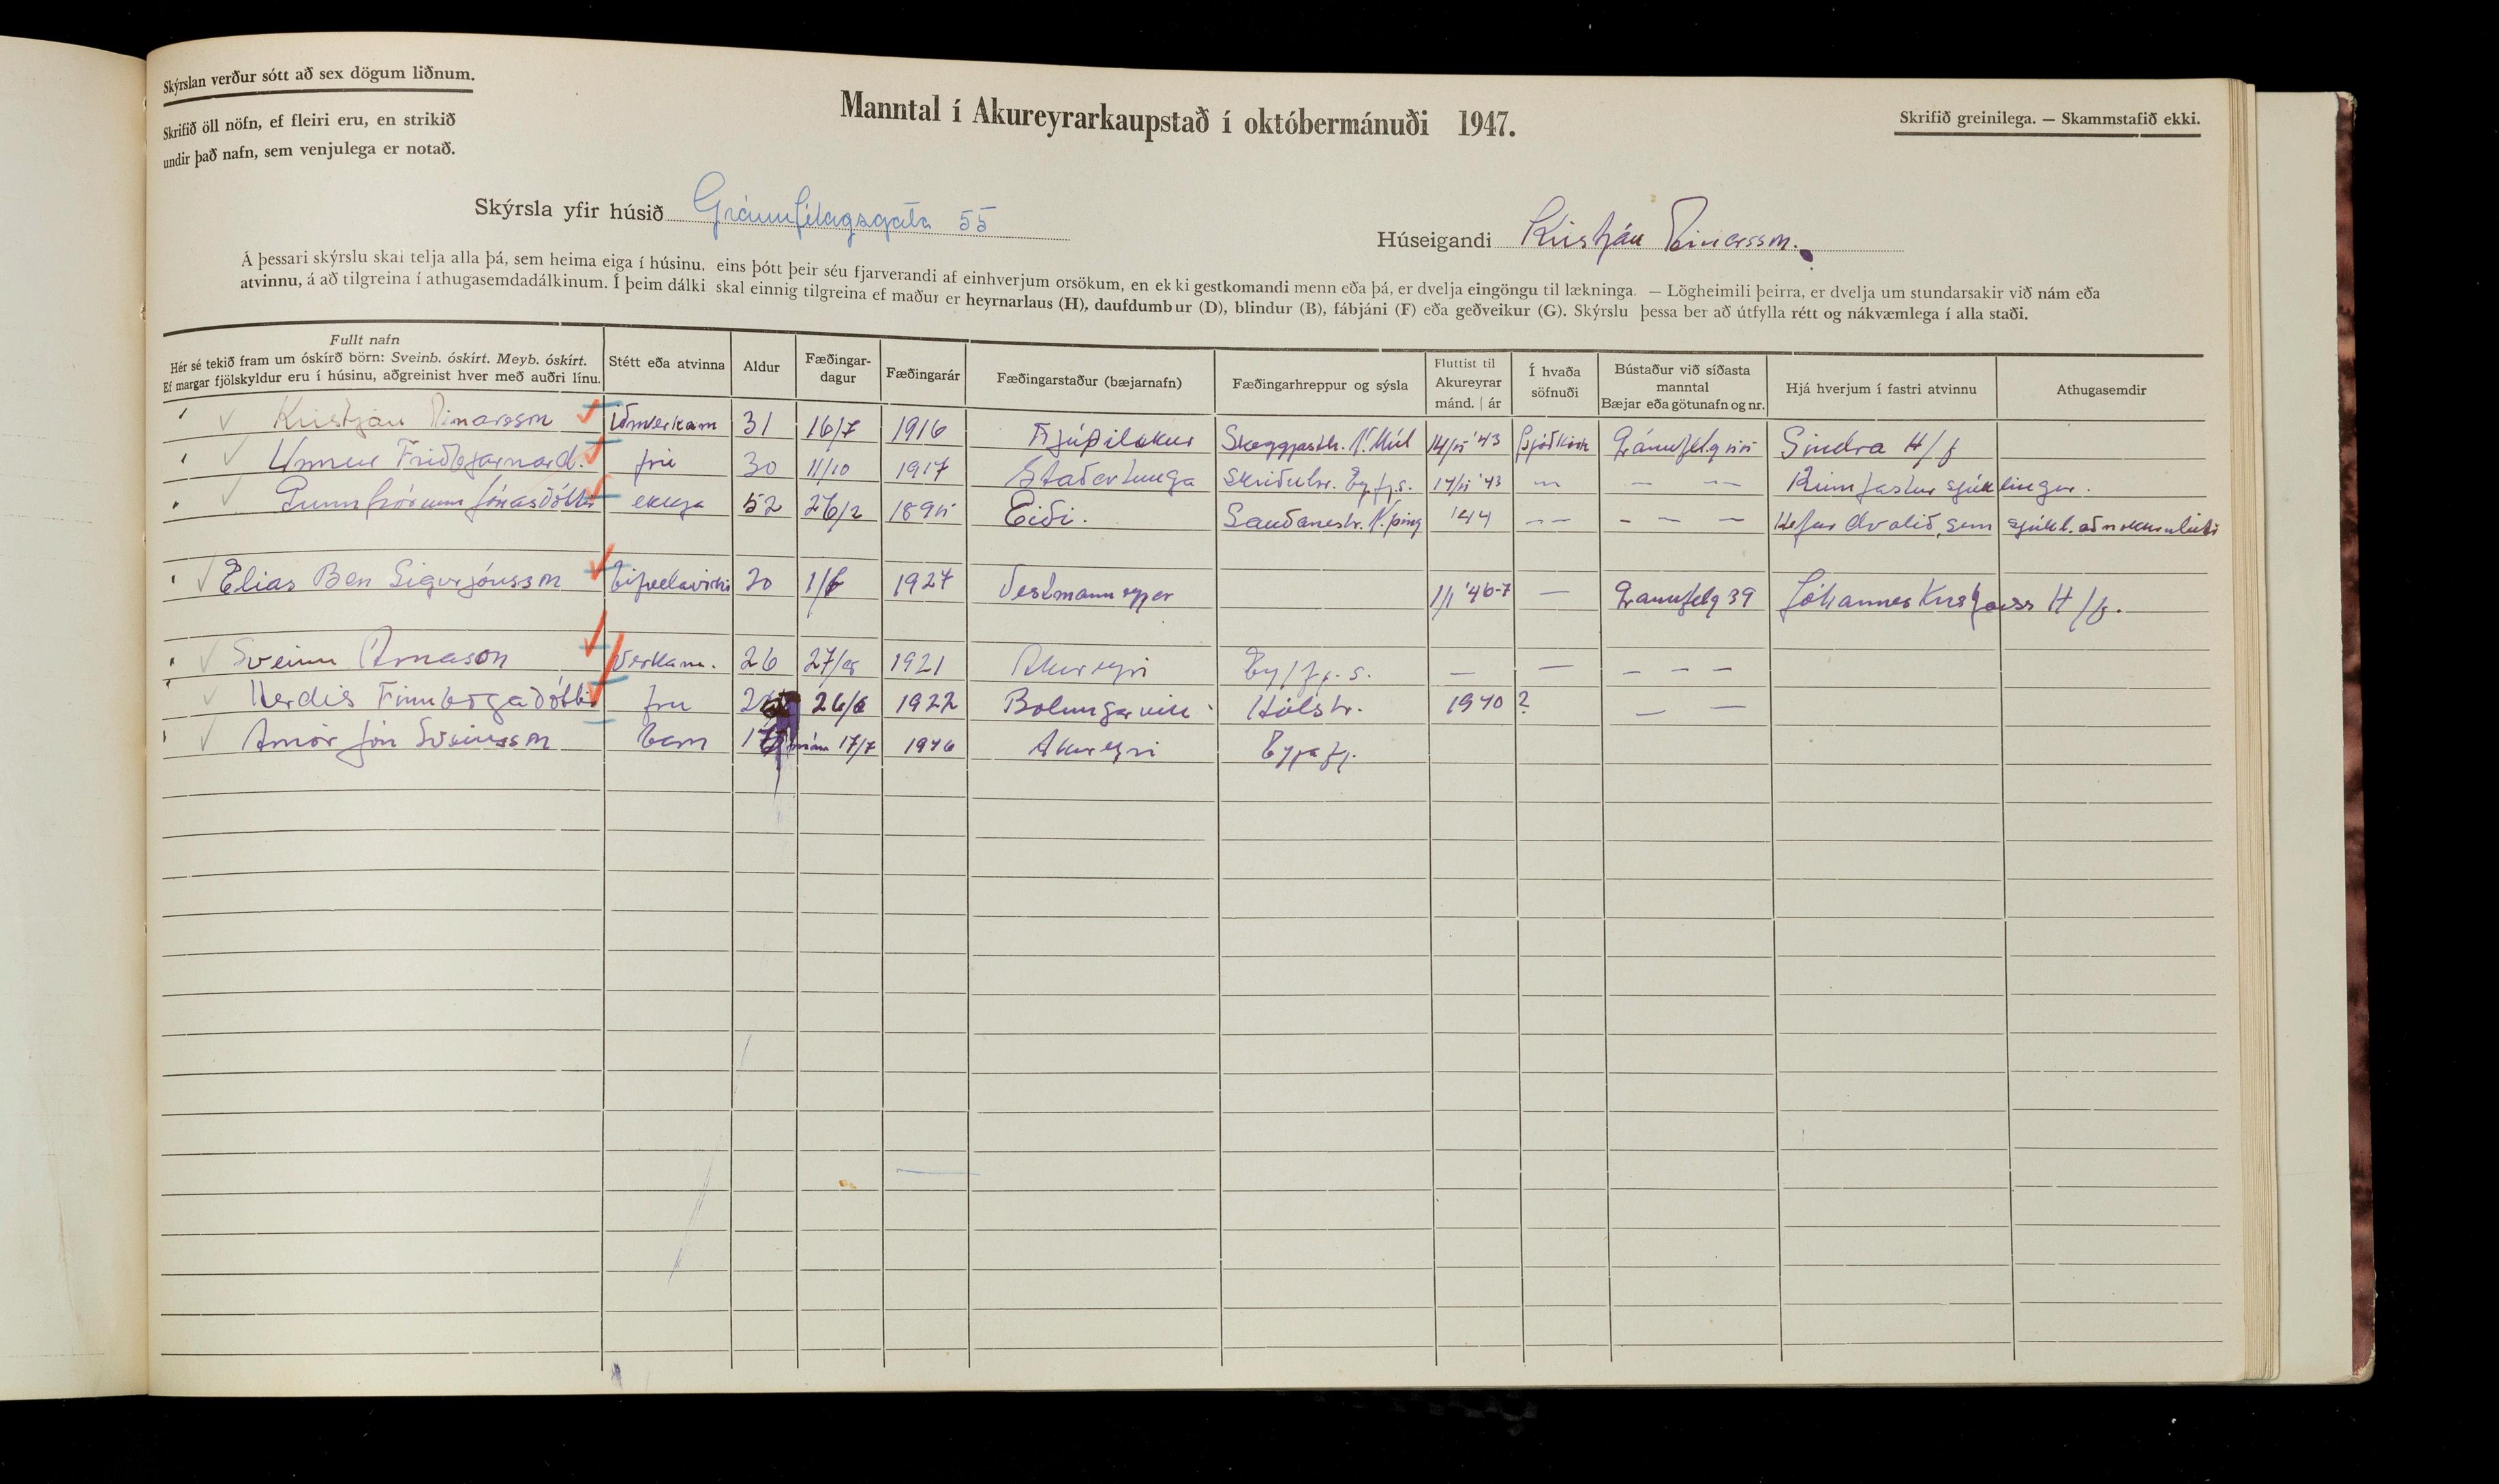 Skýrslan verður sótt að sex dögum liðnum.
Skrifið öll nöfn, ef fleiri eru, en strikið
undir það nafn, sem venjulega er notað.
Manntal í Akureyrarkaupstað í októbermánuði 1947.
Skrifið greinilega. — Skammstafið ekki.
Skýrsla yfir húsið Gránufélagsgata 55
Húseigandi Kristján Einarsson.
Á þessari skýrslu skal telja alla þá, sem heima eiga í húsinu, eins þótt þeir séu fjarverandi af einhverjum orsökum, en ekki gestkomandi menn eða þá, er dvelja eingöngu til lækninga. — Lögheimili þeirra, er dvelja um stundarsakir við nám eða
atvinnu, á að tilgreina í athugasemdadálkinum. Í þeim dálki skal einnig tilgreina ef maður er heyrnarlaus (H), daufdumbur (D), blindur (B), fábjáni (F) eða geðveikur (G). Skýrslu þessa ber að útfylla rétt og nákvæmlega í alla staði.
Fullt nafn
Hér sé tekið fram um óskírð börn: Sveinb. óskírt. Meyb. óskírt.
Ef margar fjölskyldur eru í húsinu, aðgreinist hver með auðri línu.
Stétt eða atvinna
Aldur
Fæðingar-
dagur
Fæðingarár
Fæðingarstaður (bæjarnafn)
Fæðingarhreppur og sýsla
Fluttist til
Akureyrar
mánd. | ár
Í hvaða
söfnuði
Bústaður við síðasta
manntal
Bæjar eða götunafn og nr.
Hjá hverjum í fastri atvinnu
Athugasemdir
Kristján Einarsson Iðnverkam 31 16/7 1916 Skeggjasthr. N. Múl '43 Sindra H/f
Unnur Friðbjarnard. frú 30 11/10 1917 Staðartunga Skriðuhr. Eyfj.s. '43 — — — Rúmfastur sjúklingur.
Gunnþórunn Jónasdóttir ekkja 52 26/2 1895 Eiði. Sauðaneshr. N. þing '44 — — — — — Hefur dvalið, sem sjúkl. að nokkru leiti
Elias Ben Sigurjónsson Bifvélavirki 20 1927 Vestmanneyjar 1/1 '46-7 — Gránufélg 39 Jóhannes Kristjánss H/f.
Sveinn Árnason Verkam. 26 1921 Akureyri Eyjfj. s. — — — — —
Herdís Finnbogadóttir frú 26/6 1922 Bolungarvík Hólshr. 1940 ? — —
Arnór Jón Sveinsson barn 17/7 1946 Akureyri Eyjafj.